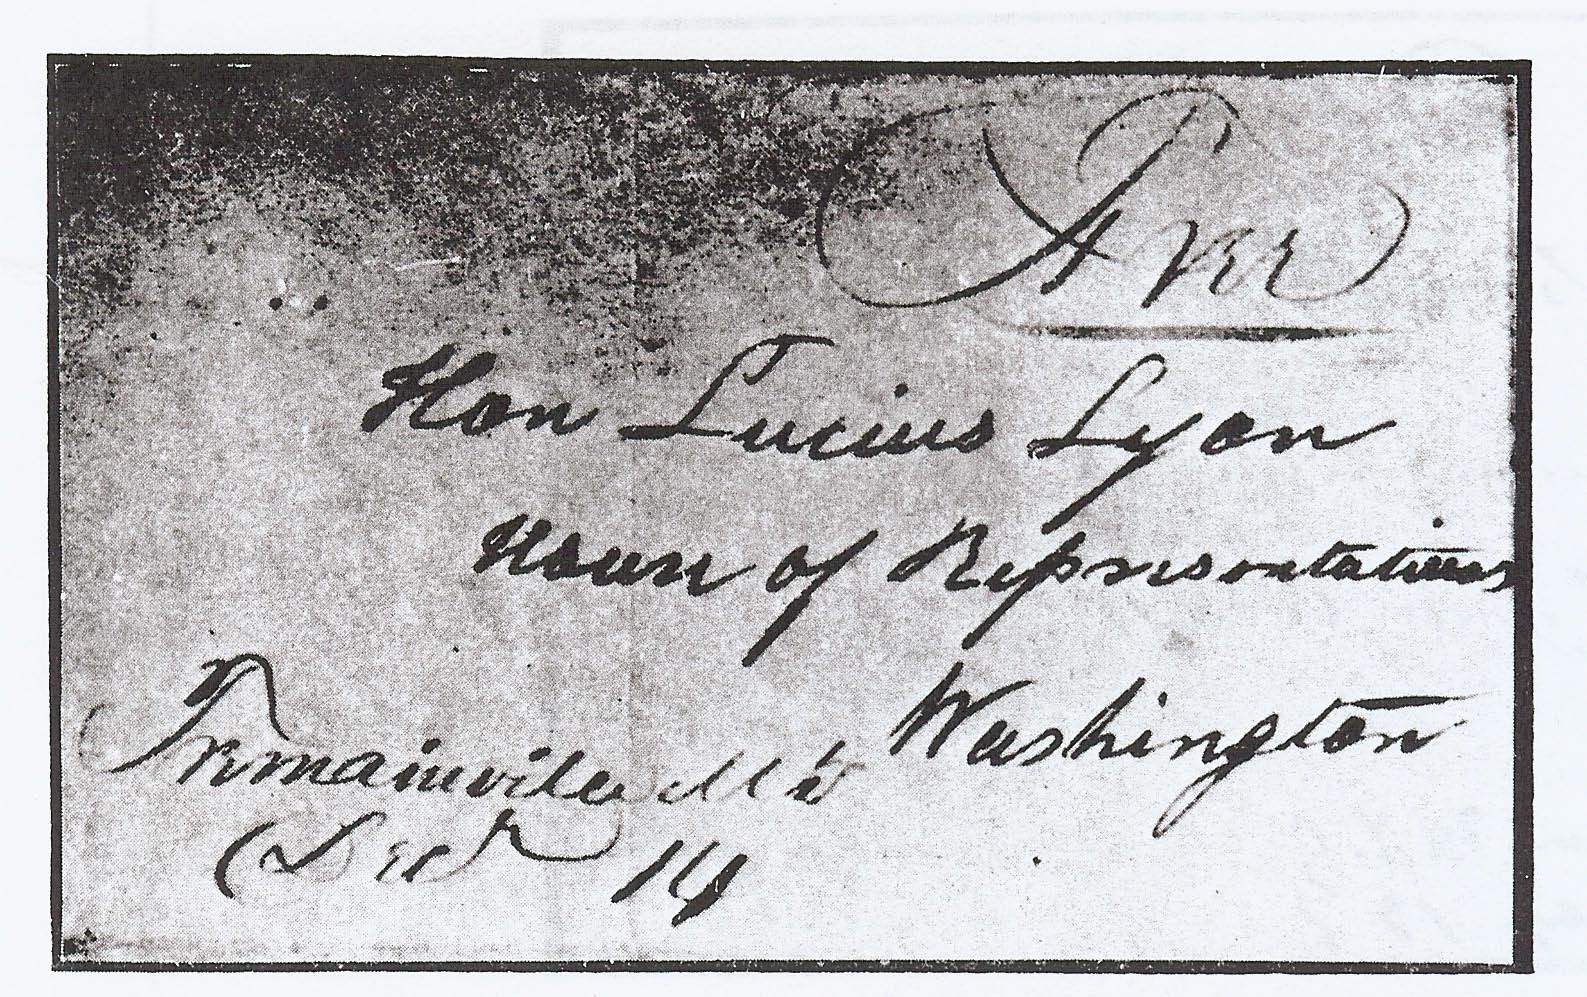 Free
Hon Lucius Lyon
House of Representatives
Washington
Tremainville
Dec 14